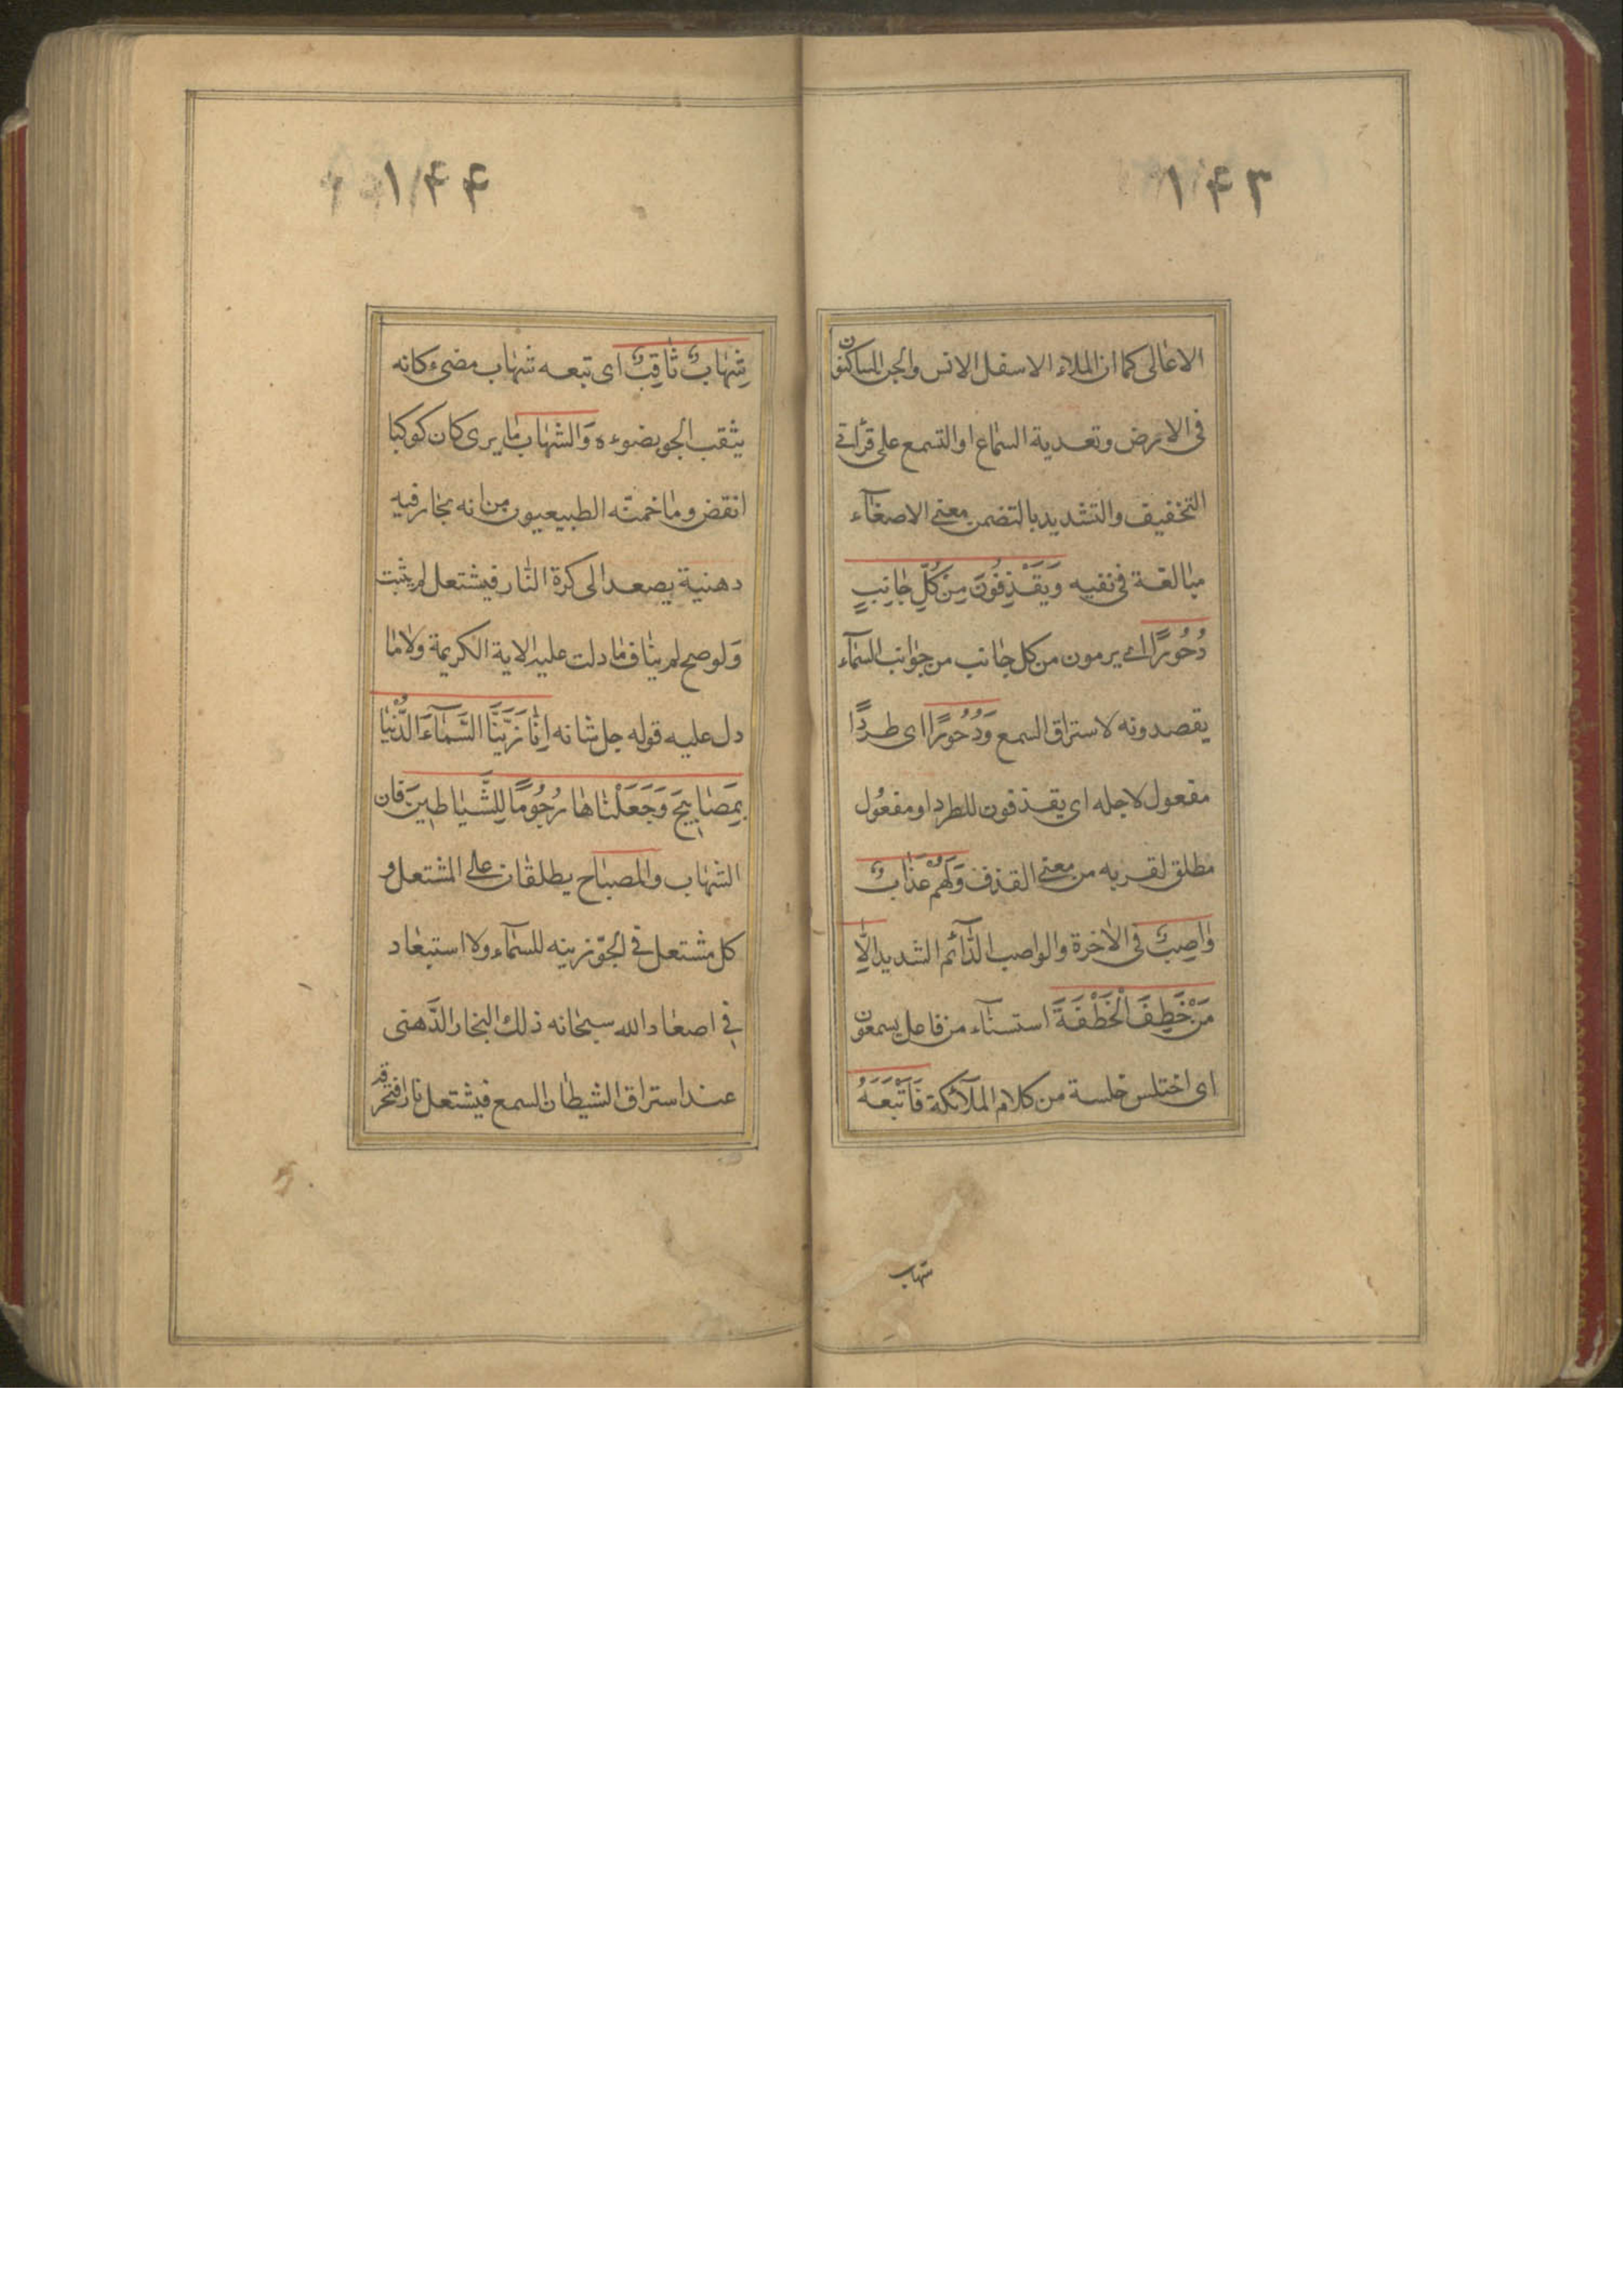 ١۴٣
الاعالى كما ان الملاء الاسفل الانس والجن الساكنون
فى الارض وتعدية السماع او التسمع على قرائتى
التخفيف والتشديد بالتضمن معنى الاصغآء
مبالغة فى نفيه وَيَقْذِفُونَ مِنْ كُلِّ جٰانِبٍ
دُحُورًا اى يرمون من كل جانب من جوانب السمآء
يقصدونه لاستراق السمع وَدُحُورًا اى طردًا
مفعول لاجله اى يقذفون للطرد او مفعول
مطلق لقربه من معنى القذف وَلَهُمْ عَذٰابٌ
وٰاصِبٌ فى الاخرة والواصب الدّائم الشديد اِلّٰا
مَنْ خَطِفَ الْخَطْفَةَ استسنآء من فاعل يسمعون
اى اختلس خلسة من كلام الملآئكة فَاَتْبَعَهُ
شهاب
١۴۴
شِهٰابٌ ثٰاقِبٌ اى تبعه شهاب مضىء كانه
يثقب الجو بضوءه وَالشهاب ما يرى كان كوكبا
انقض وما خمنته الطبيعيون من انه بخار فيه
دهنية يصعد الى كرة النّار فيشتعل لم يثبت
وَلو صح لم يناف ما دلت عليه الاية الكريمة ولا ما
دل عليه قوله جل شانه اِنّٰا زَيَّنَّا السَّمٰآءَ الدُّنْيٰا
بِمَصٰابِيحَ وَجَعَلْنٰاهٰا رُجُومًا لِلشَّيٰاطِينَ فان
الشهاب والمصباح يطلقان على المشتعل و
كل مشتعل فى الجوّ زينه للسمآء ولا استبعاد
فى اصعاد الله سبحانه ذلك البخار الدَّهنى
عند استراق الشيطان السمع فيشتعل نارا فتحرقه